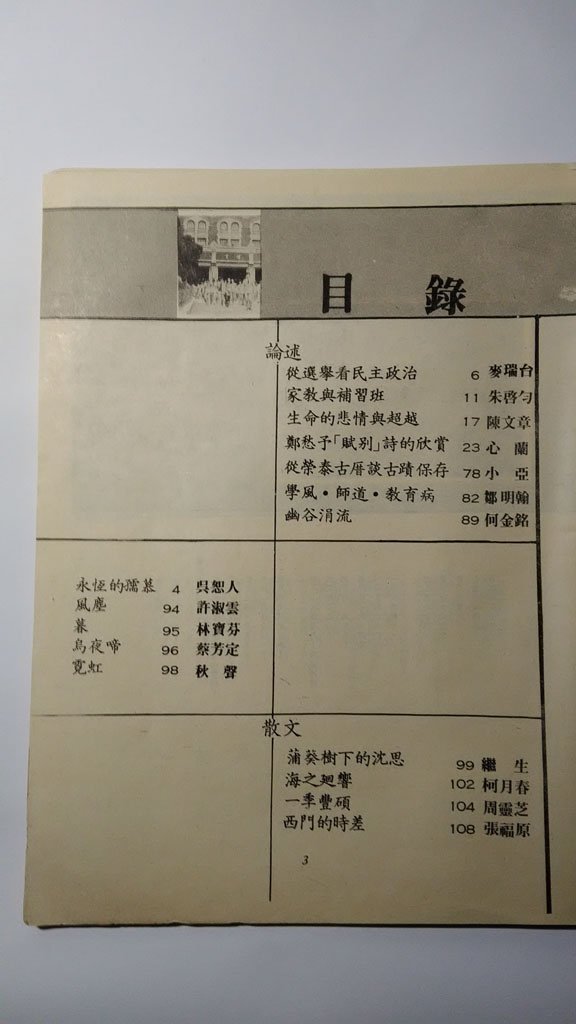 目錄
論述
從選舉看民主政治 6 麥瑞台
家教與補習班 11 朱啓勻
生命的悲情與超越 17 陳文章
鄭愁予「賦別」詩的欣賞 23 心蘭
從榮泰古厝談古蹟保存 78 小亞
學風・師道・教育病 82 鄒明翰
幽谷涓流 89 何金銘
永恆的孺慕 4 吳恕人
風塵 94 許淑雲
暮 95 林寶芬
烏夜啼 96 蔡芳定
霓虹 98 秋聲
散文
蒲葵樹下的沈思 99 繼生
海之廻響 102 柯月春
一季豐碩 104 周靈芝
西門的時差 108 張福原
3